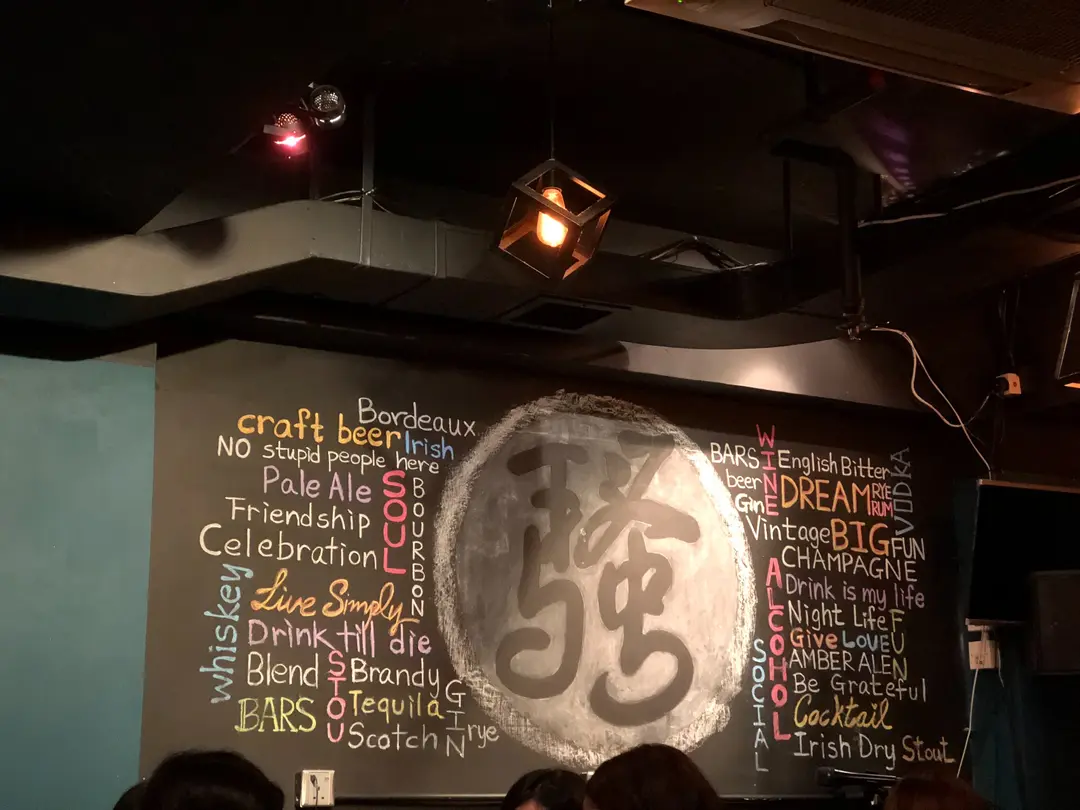 Bordeaux
craft beer Irish
NO stupid people here
Pale Ale
SOUL
BOURBON
Friendship
Celebration
whiskey
Live Simply
Drink till die
Blend
STOU
Brandy
BARS
Tequila
GIN
Scotch
rye
骚
WINE
BARS
English Bitter
VODKA
beer
Gin
DREAM
RYE
RUM
Vintage
BIG
FUN
CHAMPAGNE
ALCOHOL
Drink is my life
Night Life
FUN
Give LOVE
SOCIAL
AMBER ALE
Be Grateful
Cocktail
Irish Dry Stout